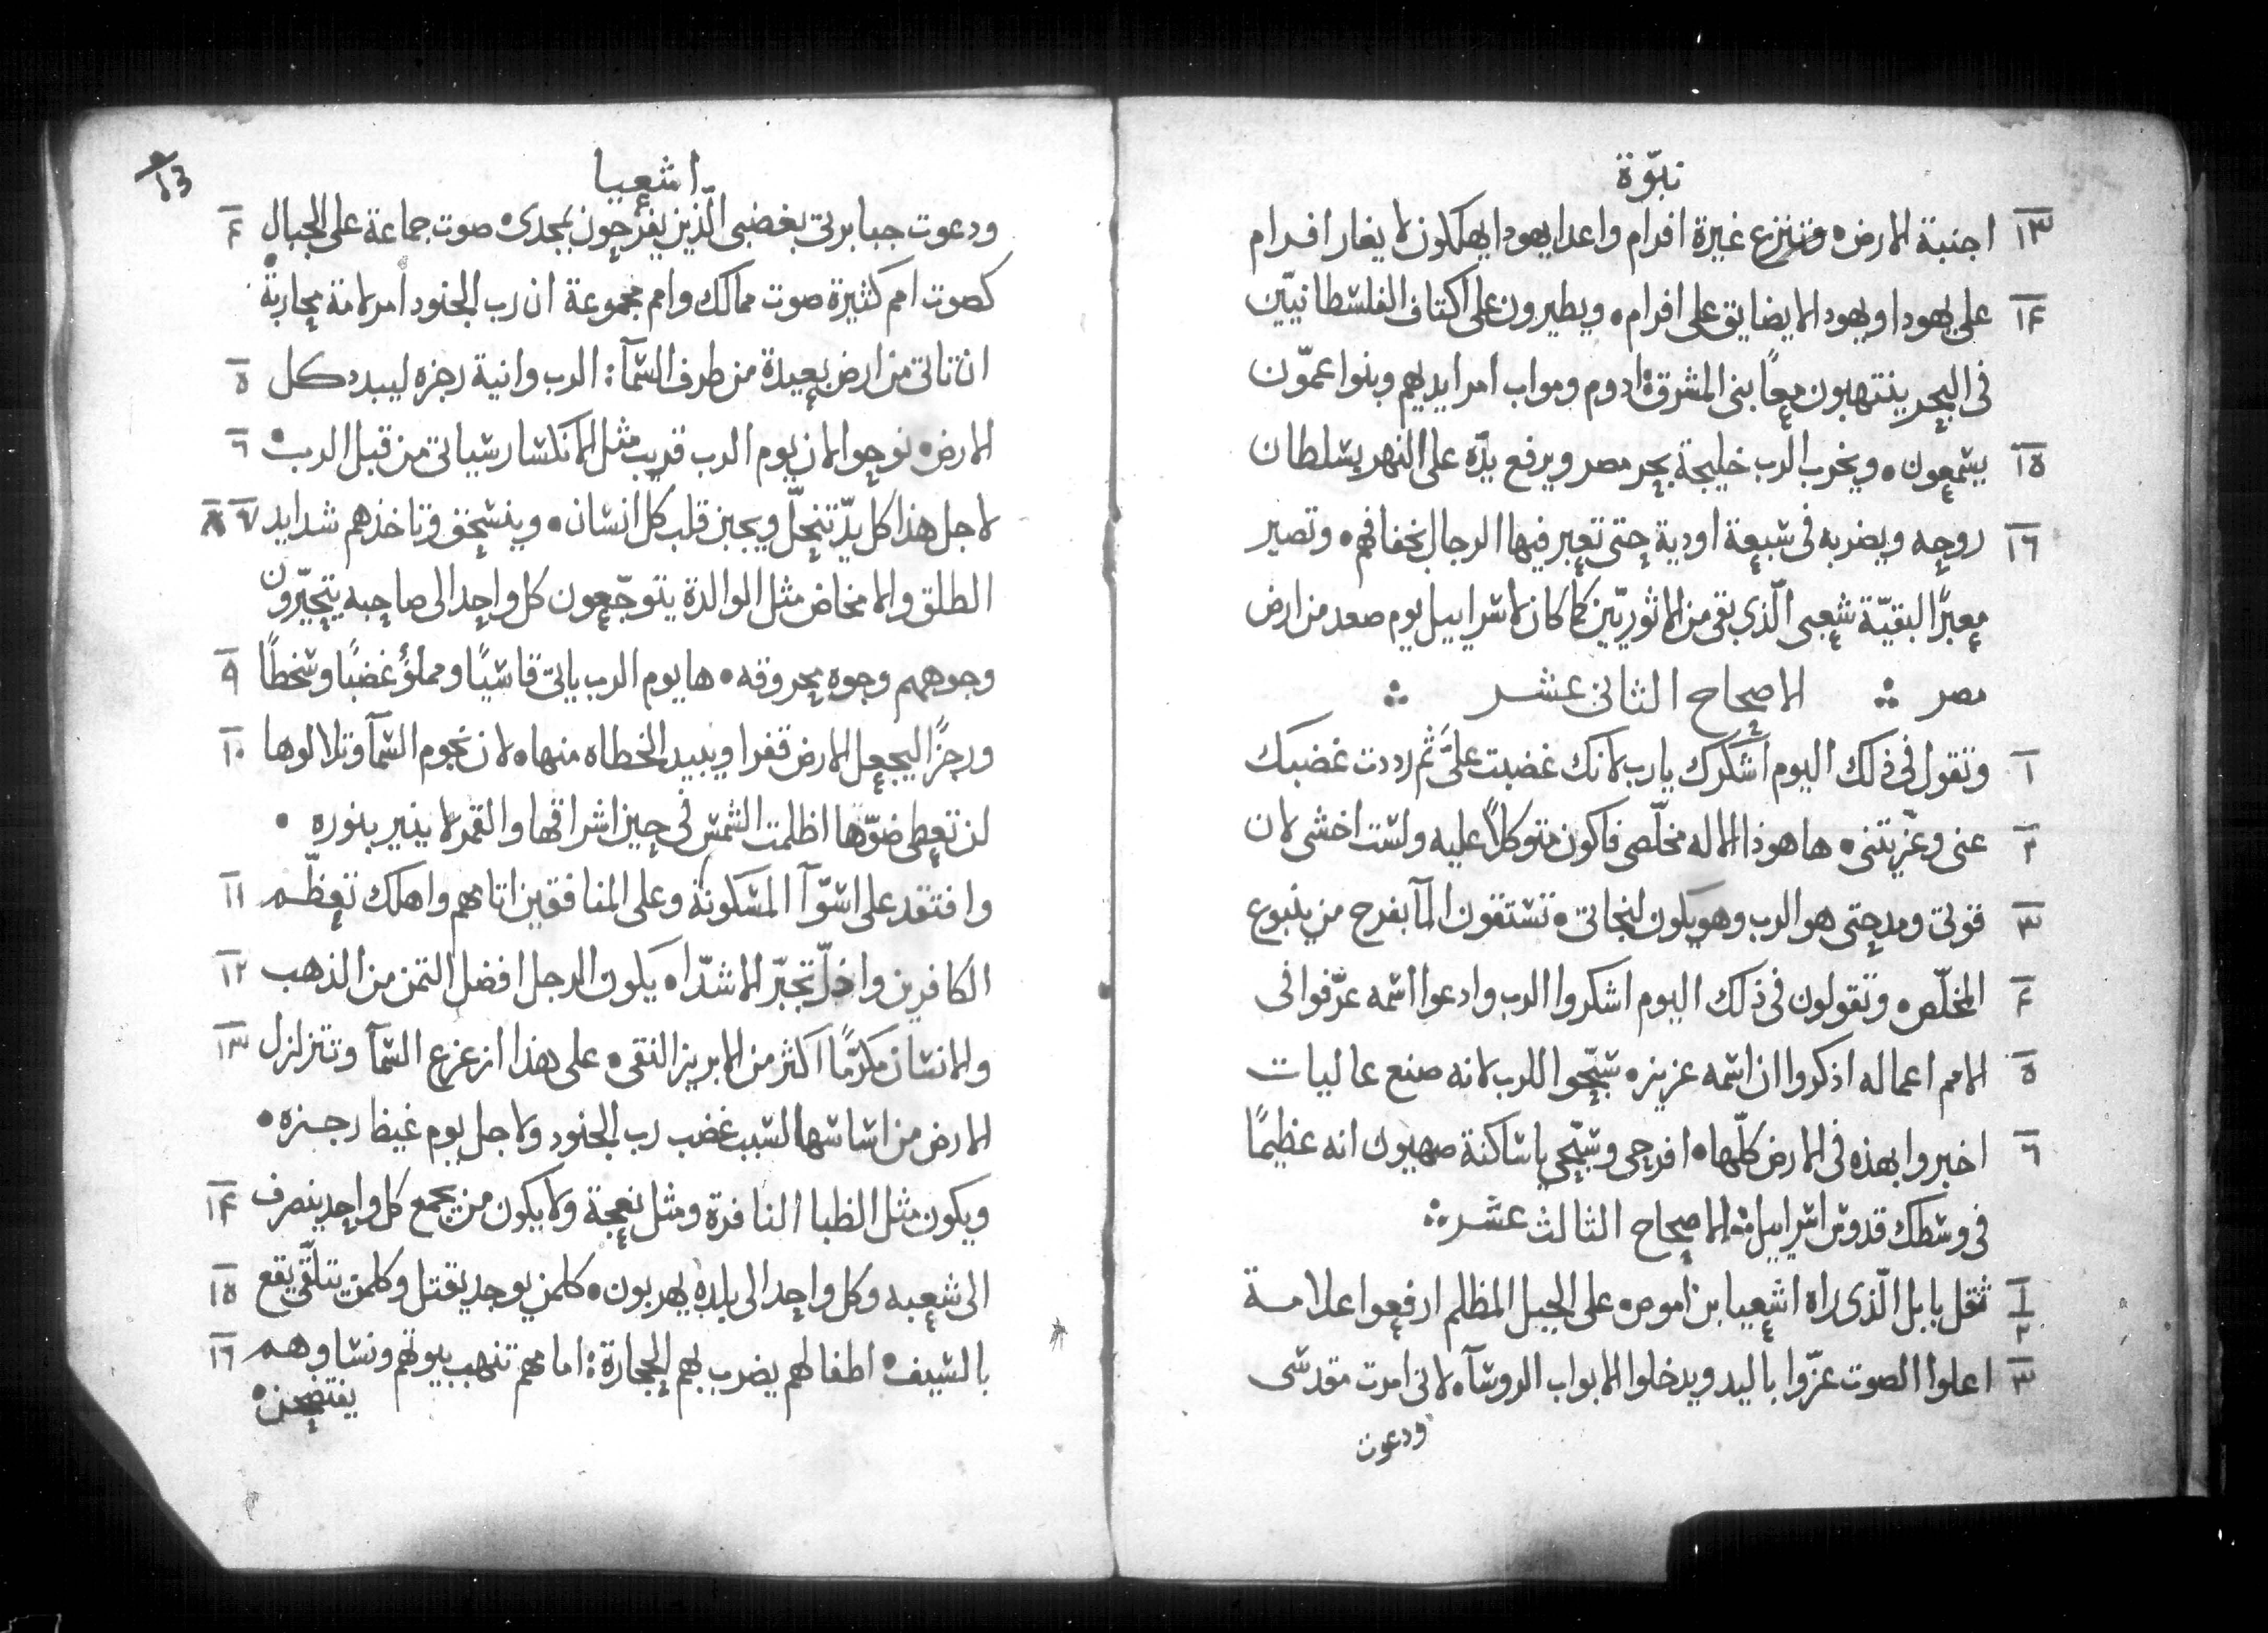 نبوّة
١٣ اجنبة الارض ٥ وتنزع غيرة افرام واعدا يهودا يهلكون لا يغار افرام
١٤ على يهودا ويهودا لا يضايق على افرام ٥ ويطيرون على اكتاف الفلسطانيّين
فى البحر ينتهبون معًا بنى المشرقة ادوم ومواب امر ايديهم وبنوا عمّون
١٥ يسمعون ٥ ويخرب الرب خليجة بحر مصر ويرفع يدّه على النهر بسلطان
١٦ روحه ويضربه فى سبعة اودية حتى تعبر فيها الرجال بخفافهم ٥ وتصير
معبرًا لبقيّة شعبى الّذي بقى من الاثوريّين كما كان لاسراييل يوم صعد من ارض
مصر ∴ الاصحاح الثانى عشر ∴
١ وتقول فى ذلك اليوم اشكرك يارب لانك غضبت علىَّ ثم رددت غضبك
٢ عنى وعزّيتنى ٥ ها هوذا الاله مخلّصى فاكون متوكلاً عليه ولست اخشى لان
٣ قوتى ومدحتى هو الرب وهو يكون لنجاتى ٥ تستقون المآ بفرح من ينبوع
٤ المخلّص ٥ وتقولون فى ذلك اليوم اشكروا الرب وادعوا اسمه عرّفوا فى
٥ الامم اعماله اذكروا ان اسمه عزيز ٥ سبّحوا للرب لانه صنع عاليات
٦ اخبروا بهذه فى الارض كلّها ٥ افرحى وسبّحي ياساكنة صهيون انه عظيمًا
فى وسطك قدوس اسراييل ∴ الاصحاح الثالث عشر ∴
١ ٢ ثقل بابل الّذى راه اشعيا بن اموص ٥ على الجبل المظلم ارفعوا علامة
٣ اعلوا الصوت عزّوا باليد ويدخلوا الابواب الروسآ ٥ لانى امرت مقدسى
ودعوت
١٣
اشعيا
ودعوت جبابرتى بغضبى الّذين يفرحون بمجدى ٥ صوت جماعة على الجبال ٤
كصوت امم كثيرة صوت ممالك وامم مجموعة ان رب الجنود امر لامة محاربة
ان تاتى من ارض بعيدة من طرف السمآ : الرب وانية رجزه ليبدد كل ٥
الارض ٥ نوحوا لان يوم الرب قريب مثل الانكسار سياتى من قبل الرب ٥ ٦
لاجل هذا كل يدّ تنحلّ ويجبن قلب كل انسان ٥ وينسحق وتاخذهم شدايد ٧ ٨
الطلق والامخاض مثل الوالدة يتوجّعون كل واحد الى صاحبه يتحيّرون
وجوههم وجوه محروقه ٥ ها يوم الرب ياتى قاسيًا ومملؤ غضبًا وسخطًا ٩
ورجزًا ليجعل الارض قفرا ويبيد الخطاه منها ٥ لان نجوم السمآ وتلالوها ١٠
لن تعطى ضوّها اظلمت الشمس فى حين اشراقها والقمر لا ينير بنوره ٥
وافتقد على اسوّآ المسكونة وعلى المنافقين اثامهم واهلك تعظّم ١١
الكافرين واذلّ تجبّر الاشدّا ٥ يكون الرجل افضل الثمن من الذهب ١٢
والانسان مكرّمًا اكثر من الابريز النقى ٥ على هذا ازعزع السمآ وتتزلزل ١٣
الارض من اساسها لسبب غضب رب الجنود ولاجل يوم غيظ رجزه ٥
ويكون مثل الظبا النافرة ومثل نعجة ولا يكون من يجمع كل واحد ينصرف ١٤
الى شعبه وكل واحد الى بلده يهربون ٥ كلمن يوجد يقتل وكلمن يتلقّى يقع ١٥
بالسيف ٥ اطفالهم يضرب بهم الحجارة : امامهم تنهب بيوتهم ونساوهم ١٦
يفتضحن ٥